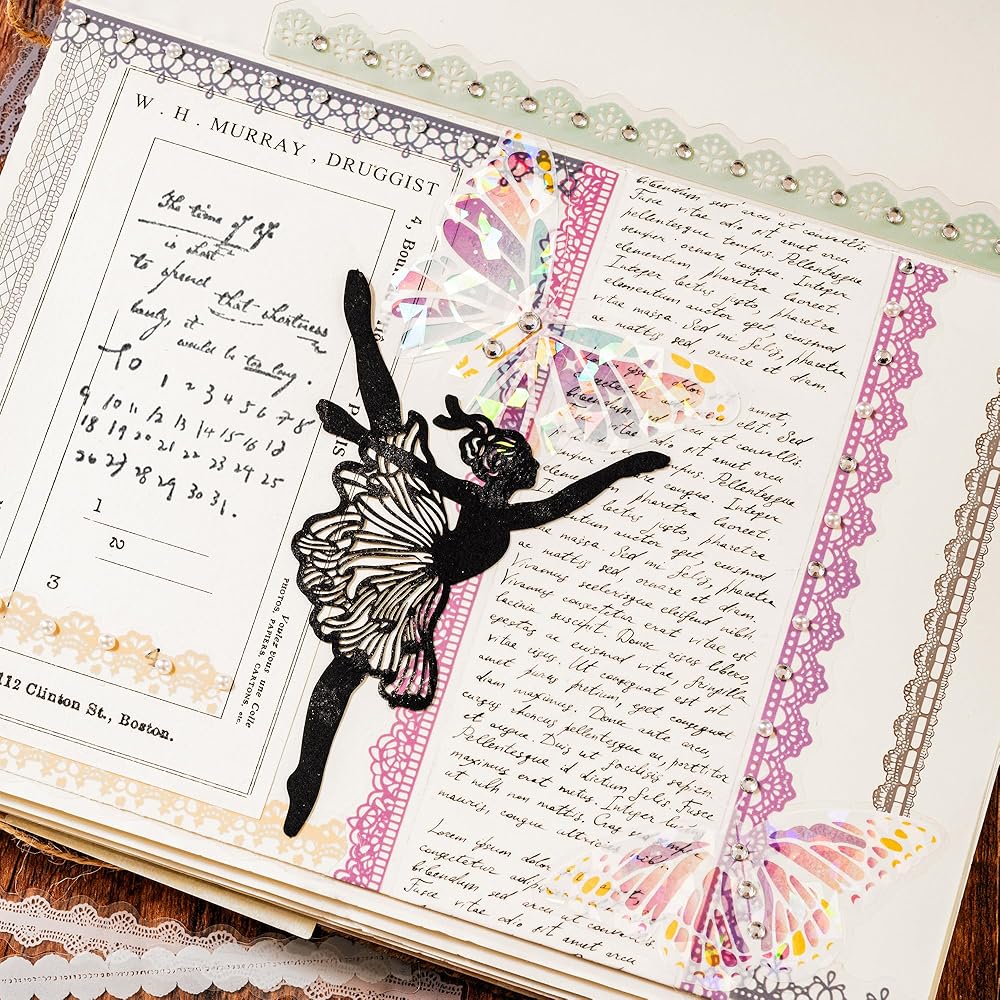 W. H. MURRAY, DRUGGIST
The time of life
is short
to spend that shortness
basely, it
would be too long.
TO 1 2 3 4 5 6 7 8
9 10 11 12 13 14 15 16 17
18 19 20 21 22 23 24 25
26 27 28 29 30 31.
1
2
3
4
112 Clinton St., Boston.
4, Bou
PHOTOS, PAPIERS, CARTONS, etc.
Voulez vous une Colle
bibendum sed arcu ut convallis.
Fusce vitae odio sit amet arcu
pellentesque tempus. Pellentesque
semper, ornare congue. Integer
elementum, pharetra laoreet.
Integer lectus justo, pharetra
elementum auctor eget, euismod
vitae massa. Sed mi felis, pharetra
ac mattis sed, ornare et diam.
ipsum dolor amet,
elit. Sed
bibendum ut convallis.
Fu sit amet arcu
Pellentesque
elementum Integer
laoreet.
Integer lectus justo, pharetra
elementum auctor eget, euismod
vitae massa. Sed mi felis, pharetra
ac mattis sed, ornare et diam.
Vivamus scelerisque eleifend nibh,
Vivamus consectetur erat vitae est
lacinia suscipit. Donec risus libero,
egestas ac euismod vitae, fringilla
vitae risus. Ut consequat est sit
amet purus pretium, eget consequat
diam maximus. Donec ante arcu,
cursus rhoncus pellentesque eu, porttitor
et augue. Duis ut facilisis sapien.
Pellentesque id dictum felis. Fusce
maximus erat metus. Integer
at nibh non mattis. Cras
mauris, congue ultricies
Lorem ipsum dolor
consectetur adipi
bibendum sed arcu ut convallis.
Fusce vitae odio sit amet arcu